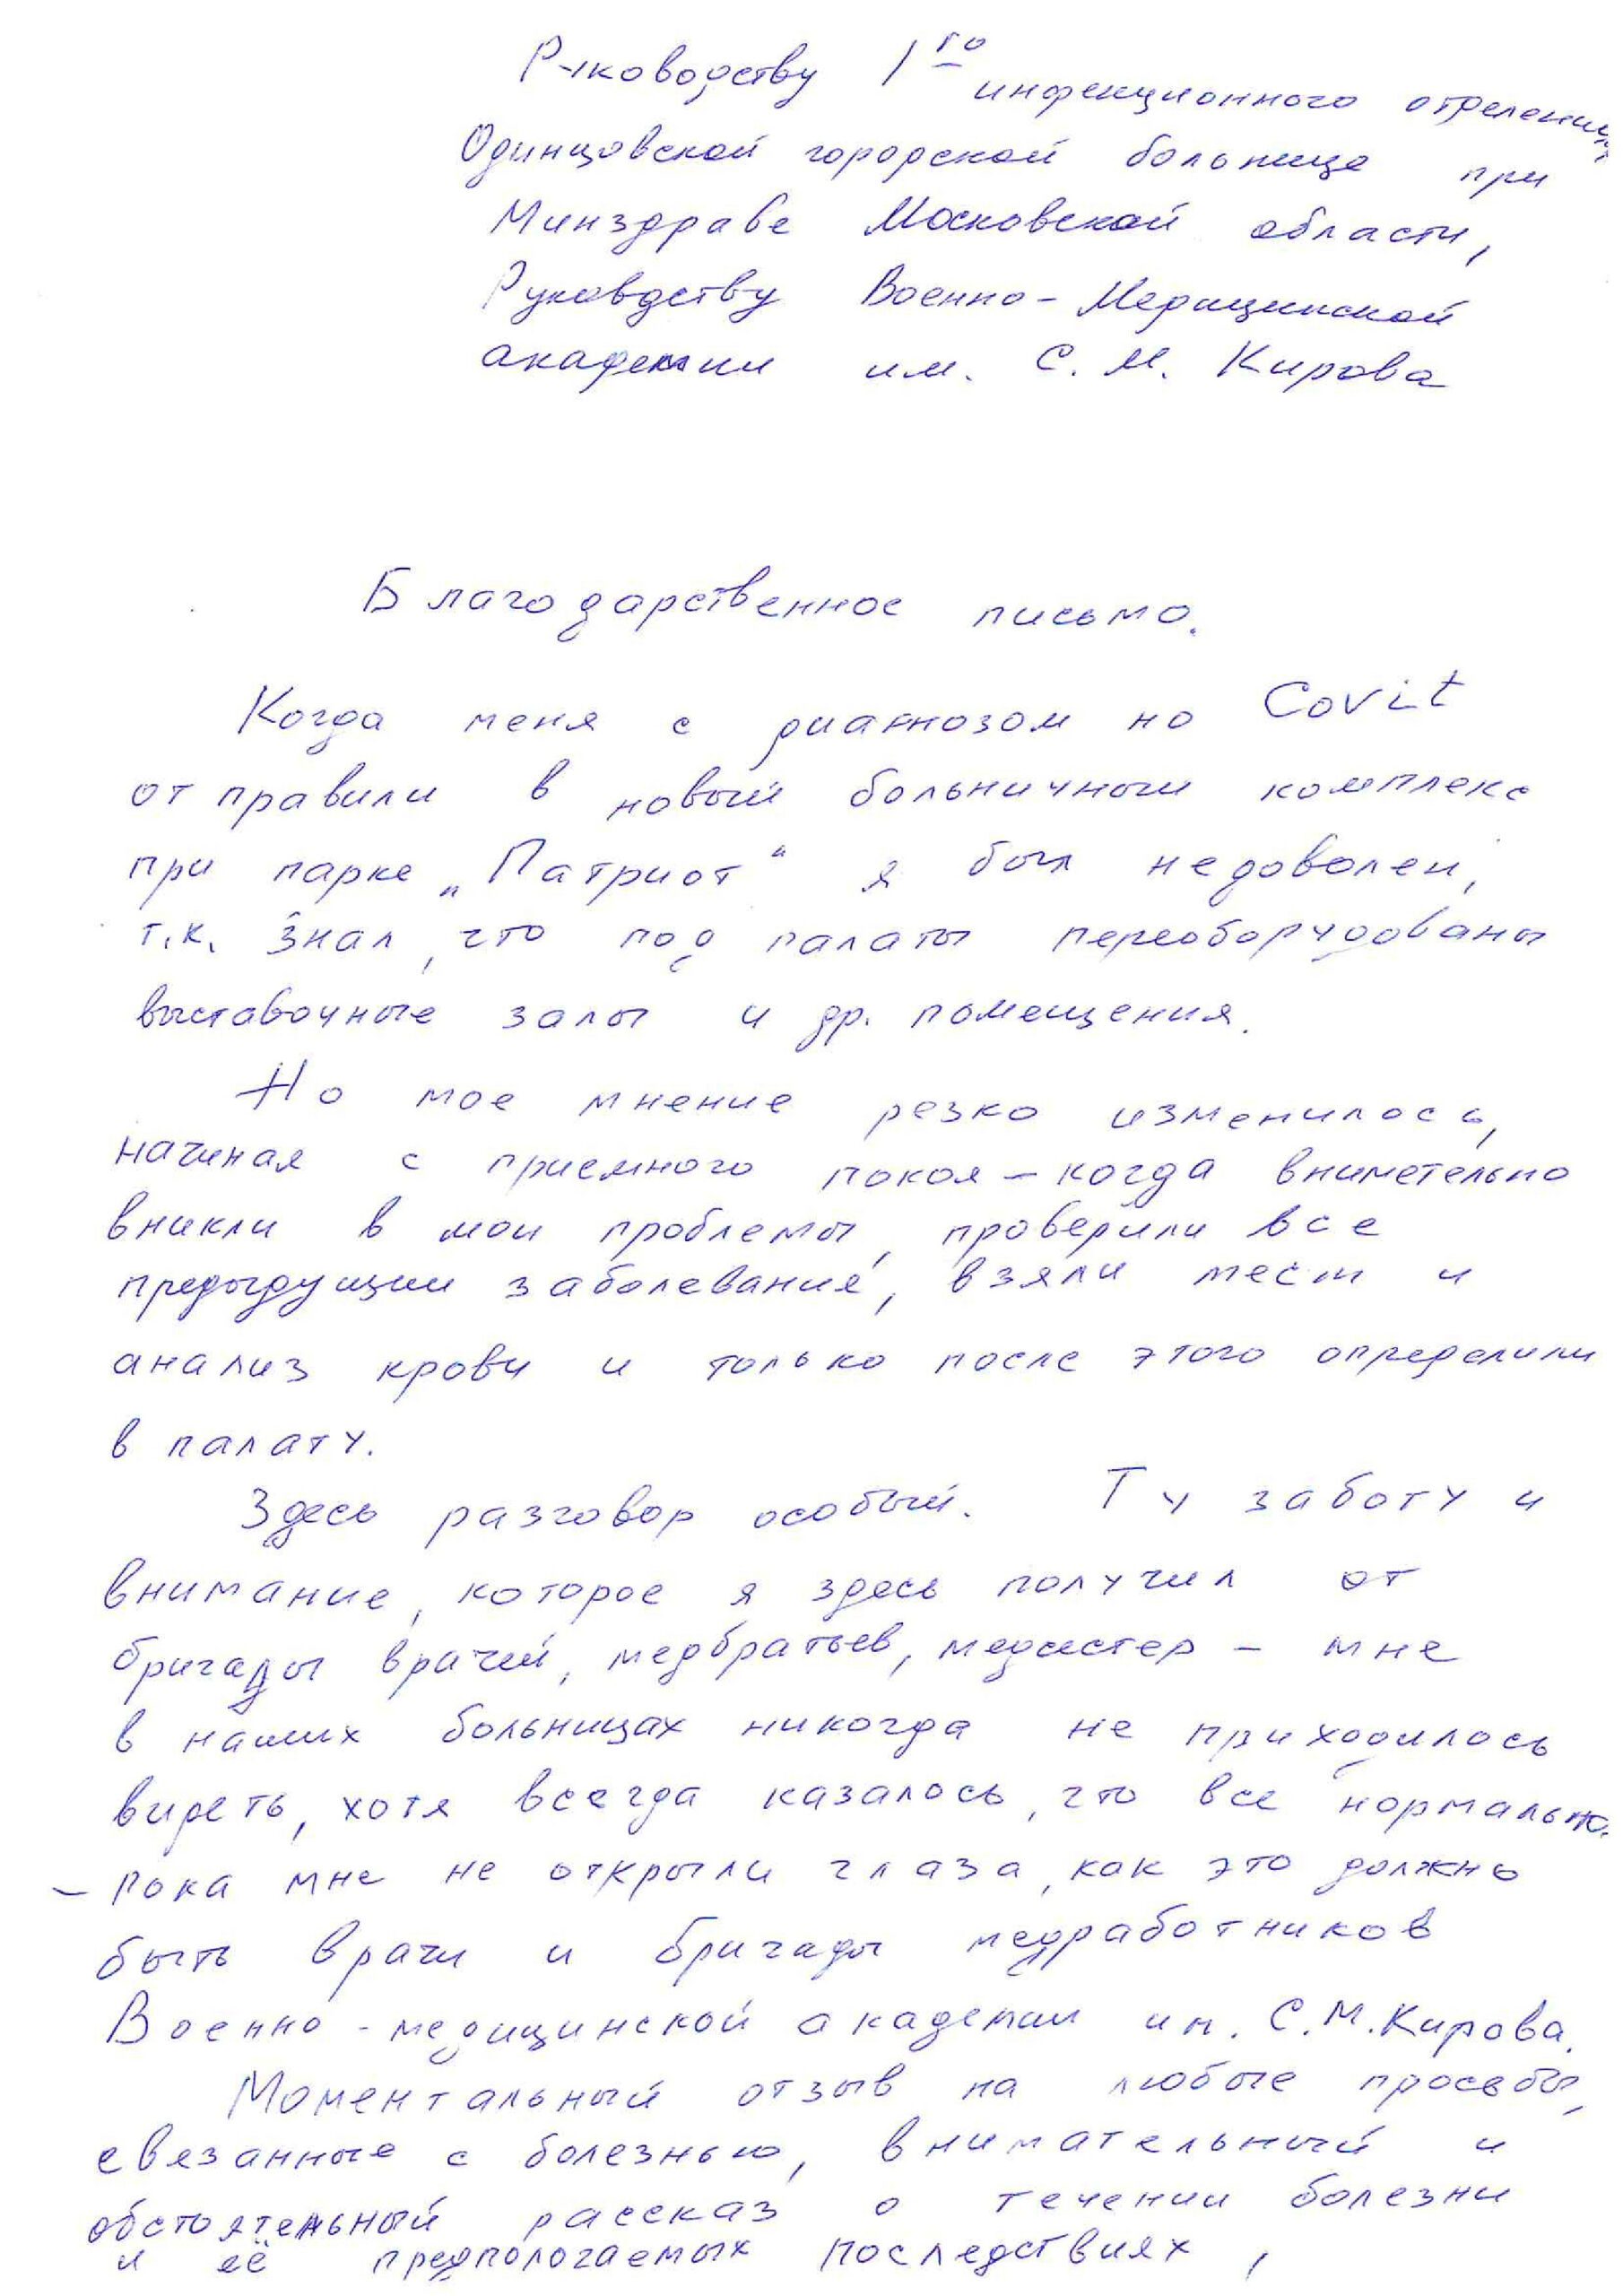 Руководству 1го инфекционного отделения
Одинцовской городской больнице при
Минздраве Московской области,
Руководству Военно-Медицинской
академии им. С. М. Кирова
Благодарственное письмо.
Когда меня с диагнозом но Covit
отправили в новый больничный комплекс
при парке „Патриот“ я был недоволен,
т.к. знал, что под палаты переоборудованы
выставочные залы и др. помещения.
Но мое мнение резко изменилось,
начиная с приемного покоя – когда вниметельно
вникли в мои проблемы, проверили все
предыдущии заболевание, взяли тест и
анализ крови и только после этого определили
в палату.
Здесь разговор особый. Ту заботу и
внимание, которое я здесь получил от
бригады врачей, медбратьев, медсистер – мне
в наших больницах никогда не приходилось
видеть, хотя всегда казалось, что все нормально.
– Пока мне не открыли глаза, как это должно
быть врачи и бригады медработников
Военно-медицинской академии им. С.М.Кирова.
Моментальный отзыв на любые просьбы,
связанные с болезнью, внимательный и
обстоятельный рассказ о течении болезни
и её предпологаемых последствиях,